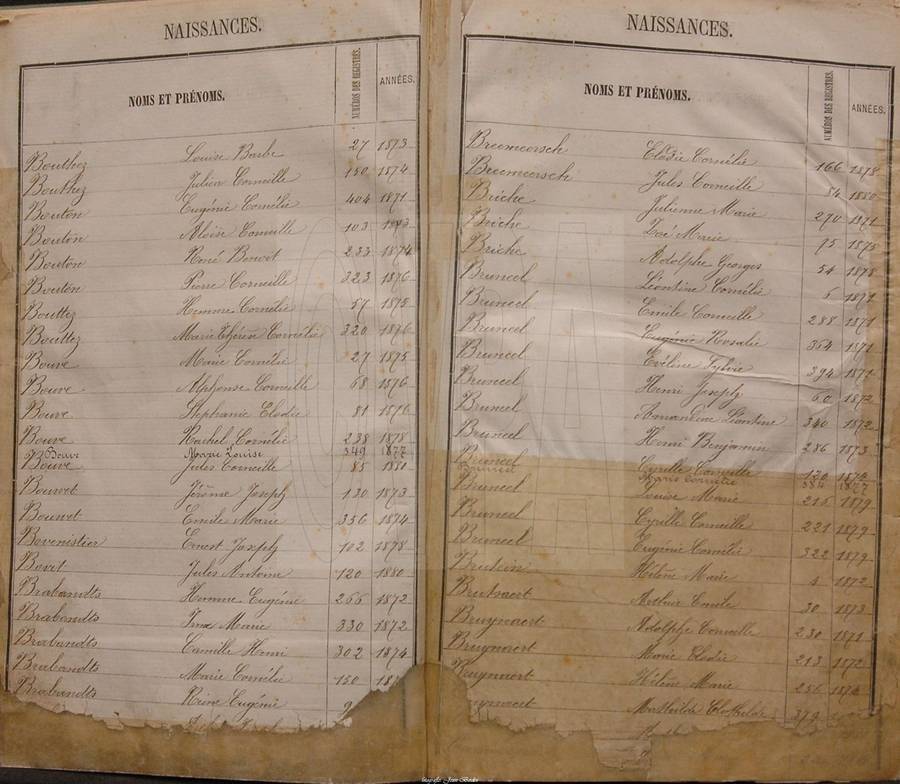 NAISSANCES.
NOMS ET PRÉNOMS. NUMÉROS DES REGISTRES. ANNÉES.
Bouthez Louise Barbe 27 1873
Bouthez Julien Corneille 150 1874
Bouton Eugénie Cornélie 404 1871
Bouton Aloïse Corneille 103 1873
Bouton René Benoit 233 1874
Bouton Pierre Corneille 323 1876
Bouttez Hermine Cornélie 57 1875
Bouttez Marie Thérèse Cornélie 320 1876
Bouve Marie Cornélie 27 1875
Bouve Alphonse Corneille 68 1876
Bouve Stéphanie Elodie 81 1876
Bouve Rachel Cornélie 238 1878
Bouve Marie Louise 349 1877
Bouve Jules Corneille 85 1880
Bouvet Jérôme Joseph 130 1873
Bouvet Emile Marie 356 1874
Bovenistier Ernest Joseph 102 1878
Bovet Jules Antoine 120 1880
Brabandts Eugénie 266 1872
Brabandts Irma Marie 330 1872
Brabandts Camille Henri 302 1874
Brabandts Marie Cornélie 150
Brabandts Reine Eugénie
NAISSANCES.
NOMS ET PRÉNOMS. NUMÉROS DES REGISTRES. ANNÉES.
Breemeersch Elodie Cornélie 166 1878
Breemeersch Jules Corneille 54 1880
Briche Julienne Marie 270 1871
Briche Zoé Marie 75 1875
Briche Adolphe Georges 54 1878
Bruneel Léontine Cornélie 5 1871
Bruneel Emile Corneille 288 1871
Bruneel Eugénie Rosalie 354 1871
Bruneel Eveline Sylvie 394 1871
Bruneel Henri Joseph 60 1872
Bruneel Amandine Léontine 340 1872
Bruneel Henri Benjamin 286 1873
Bruneel Cyrille Corneille 120
Bruneel Marie Cornélie 384 1877
Bruneel Louise Marie 215 1879
Bruneel Cyrille Corneille 221 1879
Bruneel Eugénie Cornélie 322 1879
Hélène Marie 4 1872
Brutsaert Arthur Emile 30 1873
Bruynaert Adolphe Corneille 230 1871
Bruynaert Marie Elodie 213 1872
Bruynaert Hélène Marie 256 1874
Mathilde Clothilde 379